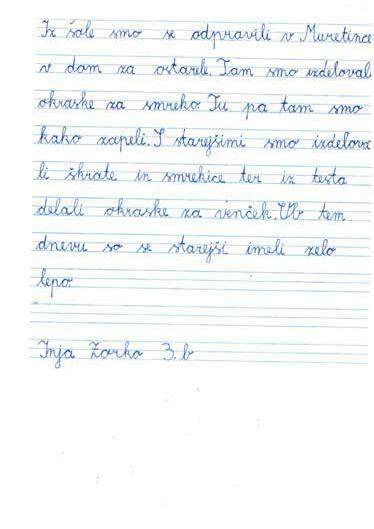 Iz šole smo se odpravili v Muretince
v dom za ostarele. Tam smo izdeloval
okraske za smreko. Tu pa tam smo
kako zapeli. S starejšimi smo izdelova
li škrate in smrekice ter iz testa
delali okraske za venček. Ob tem
dnevu so se starejši imeli zelo
lepo.
Inja Zorko 3. b